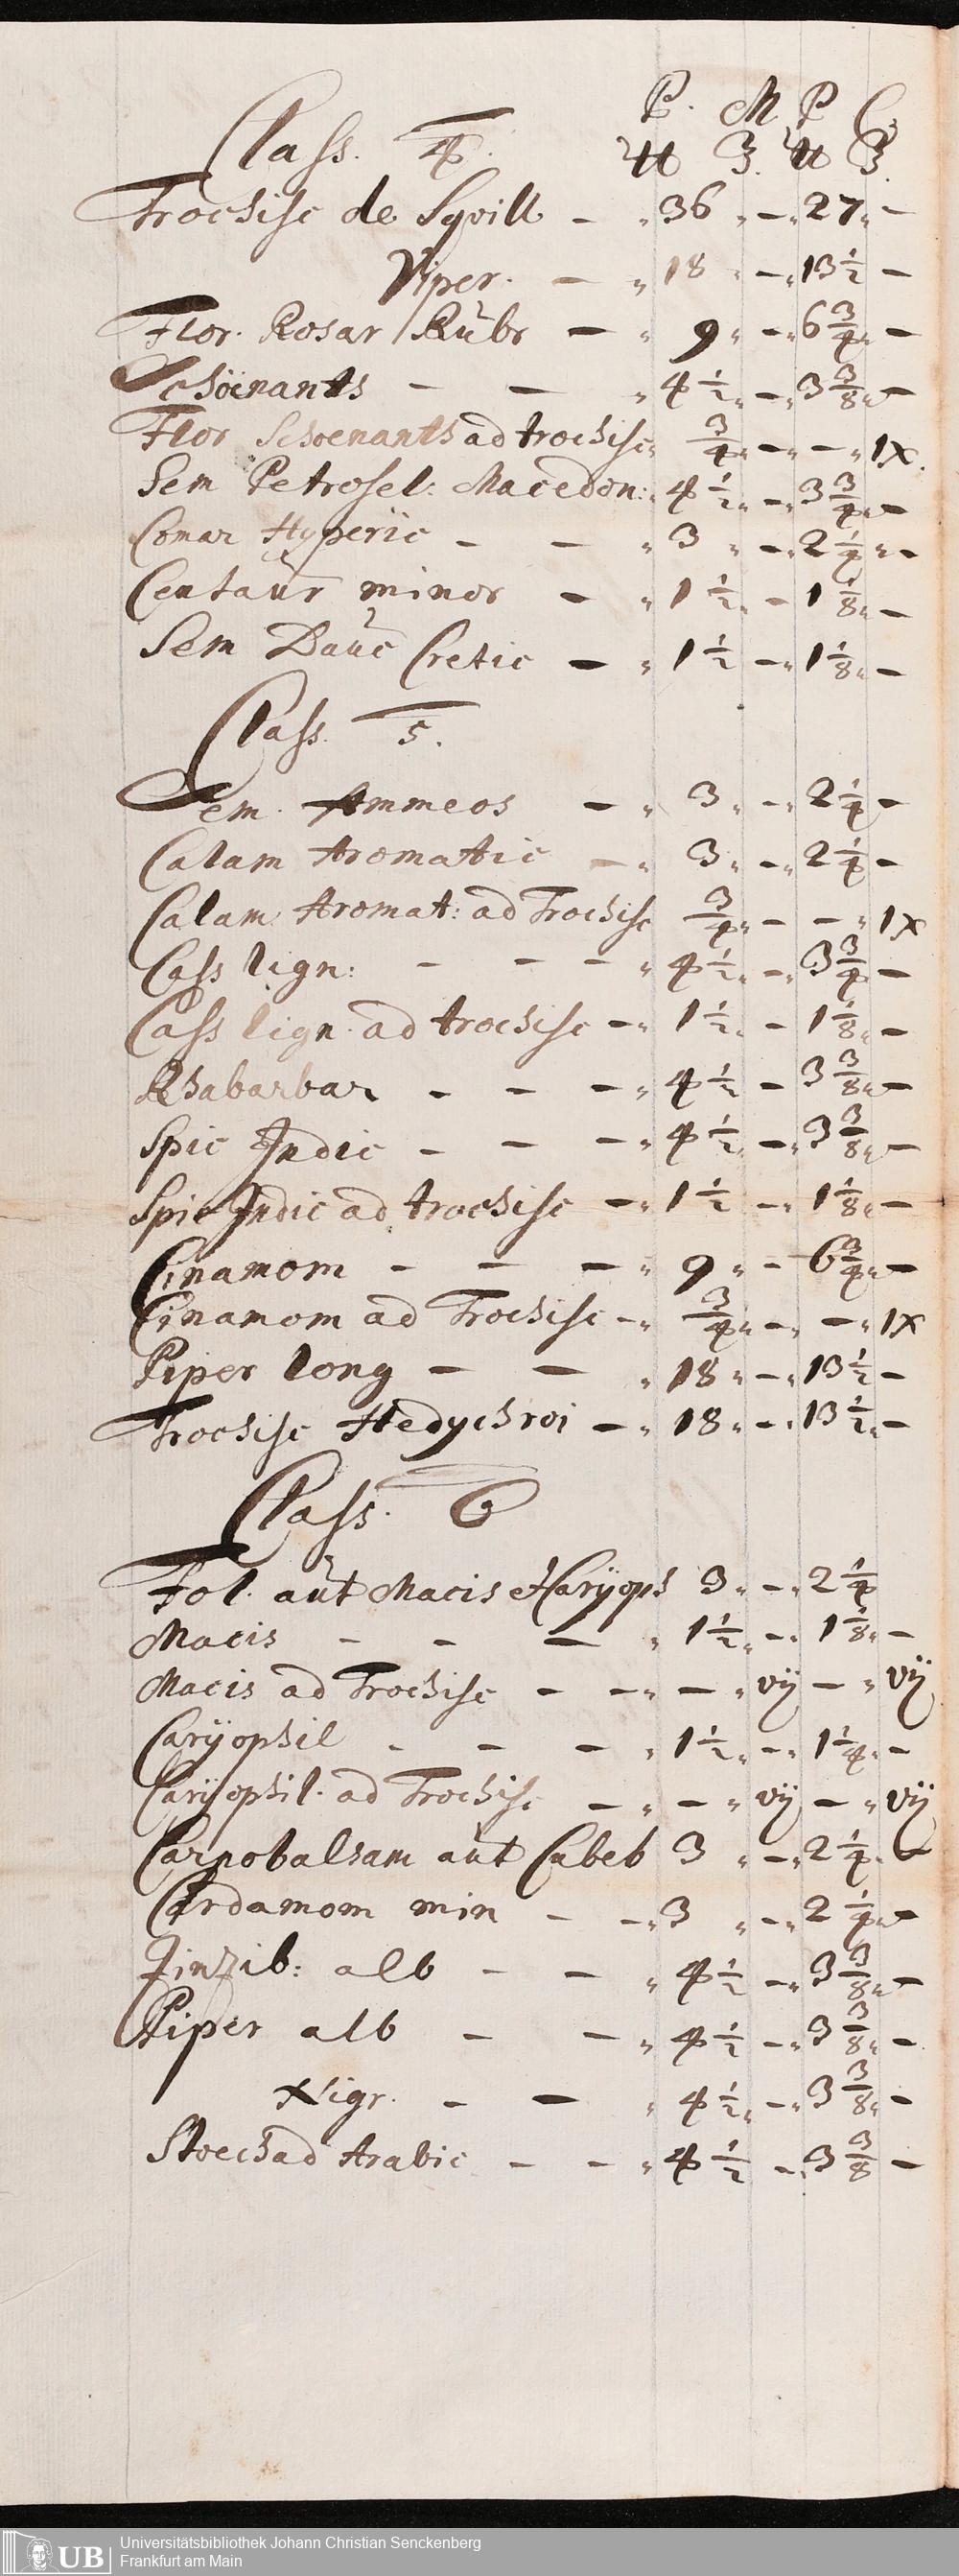 P. M P C.
Class. 4. ℔ ℥. ℔ ℥.
Trochisc de Sqvill - „ 36 „ - „ 27 „ -
Viper. - „ 18 „ - „ 13 1/2 -
Flor. Rosar Rubr - „ 9 „ - „ 6 3/4 „ -
Schoenants - - „ 4 1/2 „ - „ 3 3/8 „ -
Flor Schoenants ad trochisc „ 3/4 „ - „ - „ 1x.
Sem Petrosel: Macedon: „ 4 1/2 „ - „ 3 3/4 „ -
Comar Hyperic - - „ 3 „ - „ 2 1/4 „ -
Centaur minor - „ 1 1/2 „ - 1 1/8 „ -
Sem Dauc Cretic - „ 1 1/2 - „ 1 1/8 „ -
Class. 5.
Sem. Ammeos - „ 3 „ - „ 2 1/4 -
Calam Aromatic - „ 3 „ - „ 2 1/4 -
Calam Aromat: ad Trochisc 3/4 „ - - „ 1x
Cass lign: - - - „ 4 1/2 „ - „ 3 3/4 -
Cass lign. ad trochisc - „ 1 1/2 „ - 1 1/8 „ -
Rhabarbar - - - „ 4 1/2 - 3 3/8 „ -
Spic Indic - - - „ 4 1/2 - „ 3 3/8 „ -
Spic Indic ad trochisc - „ 1 1/2 - „ 1 1/8 „ -
Cinamom - - - „ 9 „ - 6 3/4 „ -
Cinamom ad Trochisc - „ 3/4 „ - „ - „ 1x
Piper long - - „ 18 „ - „ 13 1/2 -
Trochisc Hedychroi - „ 18 „ - „ 13 1/2 „ -
Class. 6
Fol. aut Macis Caryoph 3 „ - „ 2 1/4
Macis - - - „ 1 1/2 „ - „ 1 1/8 „ -
Macis ad Trochisc - - „ - „ vÿ - „ vÿ
Carÿophil - - - „ 1 1/2 „ - „ 1 1/4 „ -
Carÿophil. ad Trochisc - „ - „ vÿ - „ vÿ
Carpobalsam aut Cubeb 3 „ - „ 2 1/4 „ -
Cardamom min - - „ 3 „ - „ 2 1/4 „ -
Zinzib: alb - - „ 4 1/2 - „ 3 3/8 „ -
Piper alb - - „ 4 1/2 - „ 3 3/8 „ -
Nigr. - - „ 4 1/2 „ - „ 3 3/8 „ -
Stoechad Arabic - - „ 4 1/2 - „ 3 3/8 -
UB
Universitätsbibliothek Johann Christian Senckenberg
Frankfurt am Main